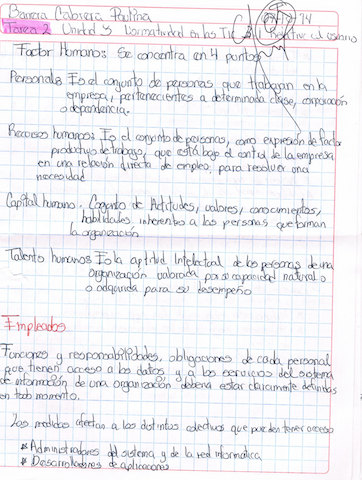 Barrera Cabrera Paulina
Tarea 2 Unidad 5 Normatividad en las TIC relativa al usuario
Factor Humano: Se concentra en 4 puntos
Personal: Es el conjunto de personas que trabajan en la
empresa, pertenecientes a determinada clase, corporación
o dependencia.
Recursos humanos: Es el conjunto de personas, como expresión de factor
productivo de trabajo, que está bajo el control de la empresa
en una relación directa de empleo, para resolver una
necesidad
Capital humano. Conjunto de Actitudes, valores, conocimientos,
habilidades inherentes a las personas que forman
la organización
Talento humano: Es la aptitud Intelectual de las personas de una
organización valorada por su capacidad natural o
o adquirida para su desempeño
Empleados
Funciones y responsabilidades, obligaciones de cada personal
que tienen acceso a los datos y a los servicios del sistema
de información de una organización deberá estar claramente definidas
en todo momento.
Las medidas afectan a los distintos colectivos que pueden tener acceso
* Administradores del sistema y de la red informática
* Desarrolladores de aplicaciones